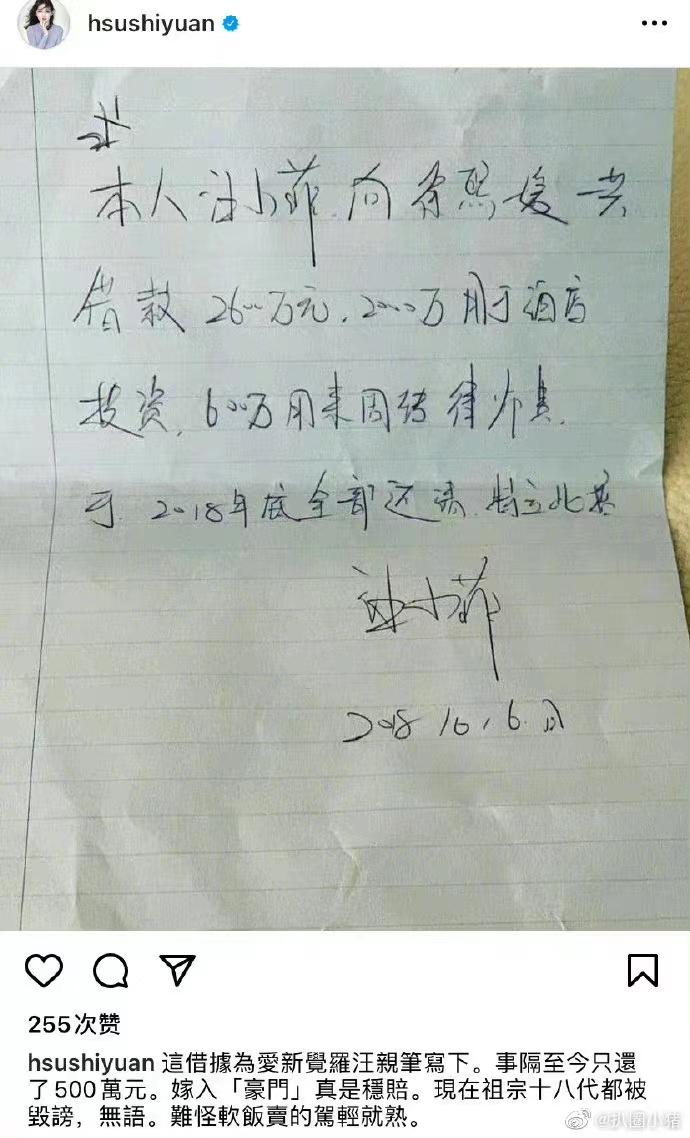 hsushiyuan
本人汪小菲.向徐熙媛共
借款2600万元,2000万用于酒店
投资,600万用来周转律师费.
于2018年底全部还清.特立此据
汪小菲
2018.10.6.日
255次赞
hsushiyuan 這借據為愛新覺羅汪親筆寫下。事隔至今只還
了500萬元。嫁入「豪門」真是穩賠。現在祖宗十八代都被
毀謗，無語。難怪軟飯賣的駕輕就熟。
@扒圈小猪